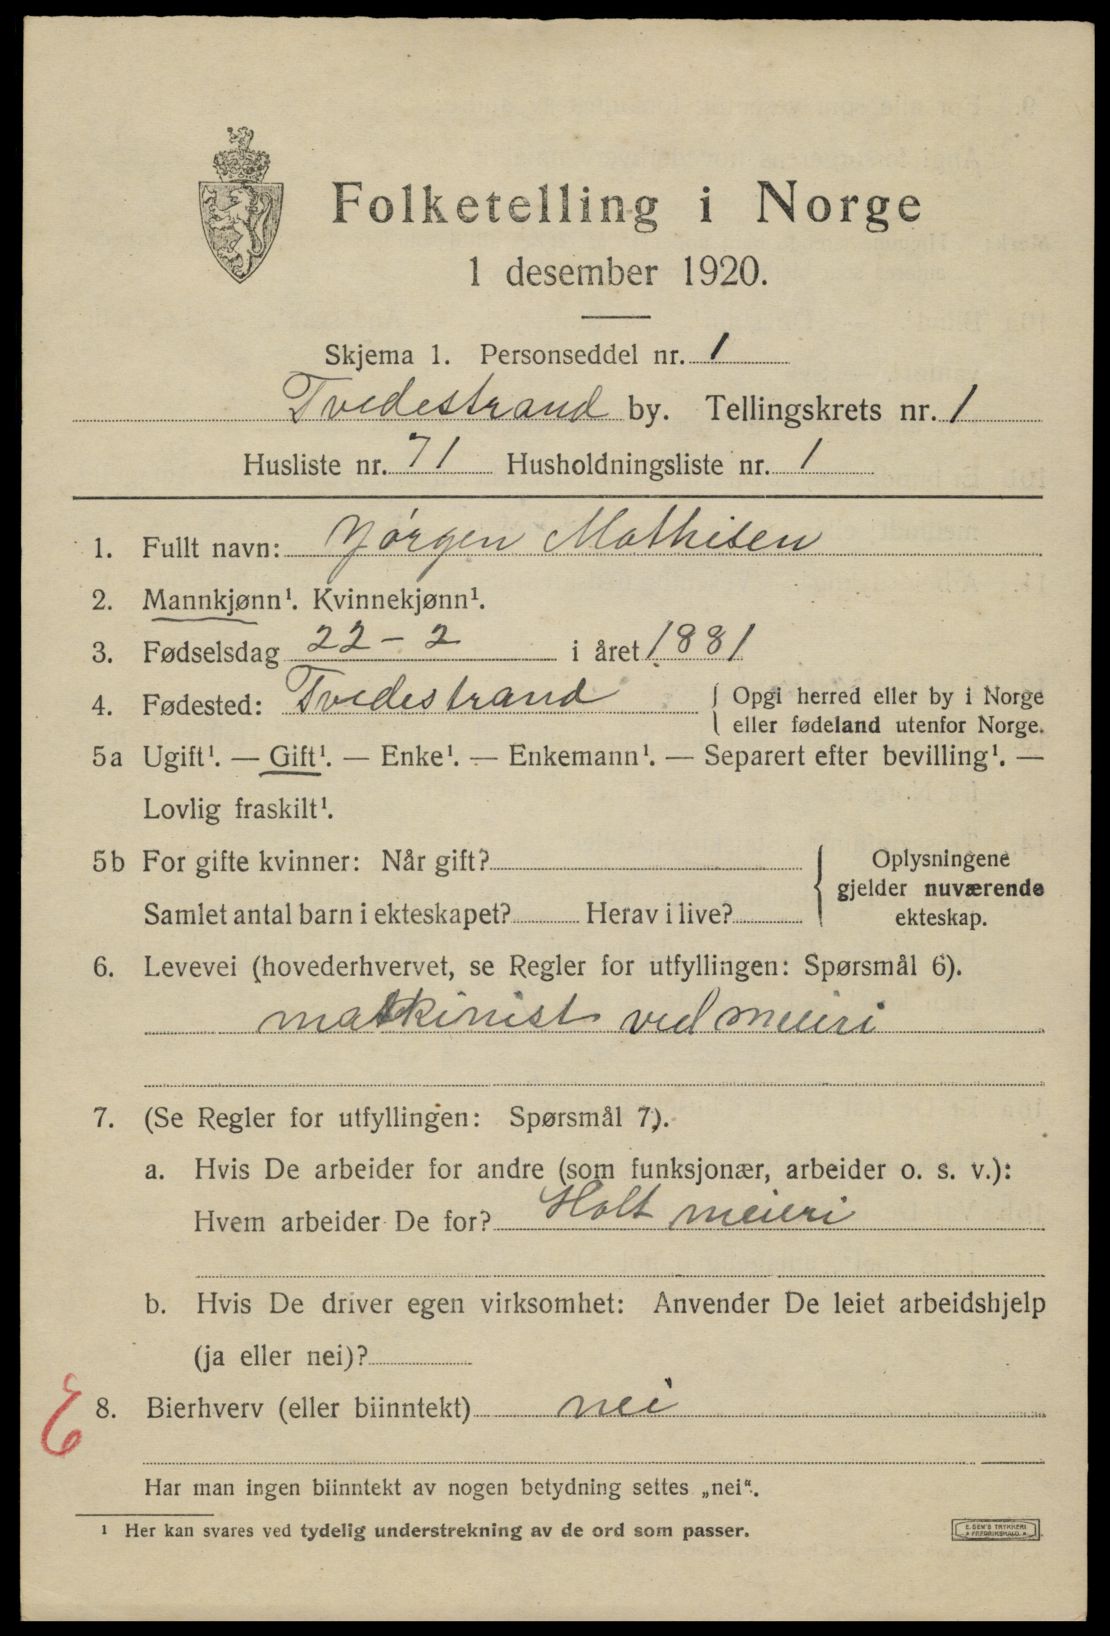 Folketelling i Norge
1 desember 1920.
Skjema 1. Personseddel nr. 1
Tvedestrand by. Tellingskrets nr. 1
Husliste nr. 71 Husholdningsliste nr. 1
1. Fullt navn: Jørgen Mathisen
2. Mannkjønn¹. Kvinnekjønn¹.
3. Fødselsdag 22 - 2 i året 1881
4. Fødested: Tvedestrand { Opgi herred eller by i Norge
eller fødeland utenfor Norge.
5a Ugift¹. — Gift¹. — Enke¹. — Enkemann¹. — Separert efter bevilling¹. —
Lovlig fraskilt¹.
5b For gifte kvinner: Når gift?
Samlet antal barn i ekteskapet? Herav i live?
Oplysningene
gjelder nuværende
ekteskap.
6. Levevei (hovederhvervet, se Regler for utfyllingen: Spørsmål 6).
maskinist ved meieri
7. (Se Regler for utfyllingen: Spørsmål 7).
a. Hvis De arbeider for andre (som funksjonær, arbeider o. s. v.):
Hvem arbeider De for? Holt meieri
b. Hvis De driver egen virksomhet: Anvender De leiet arbeidshjelp
(ja eller nei)?
8. Bierhverv (eller biinntekt) nei
Har man ingen biinntekt av nogen betydning settes „nei“.
¹ Her kan svares ved tydelig understrekning av de ord som passer.
E. SEM'S TRYKKERI
FREDRIKSHALD.